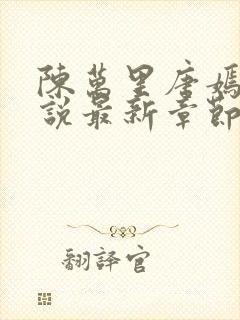 陳萬里唐嫣
說最新章節
翻譯官